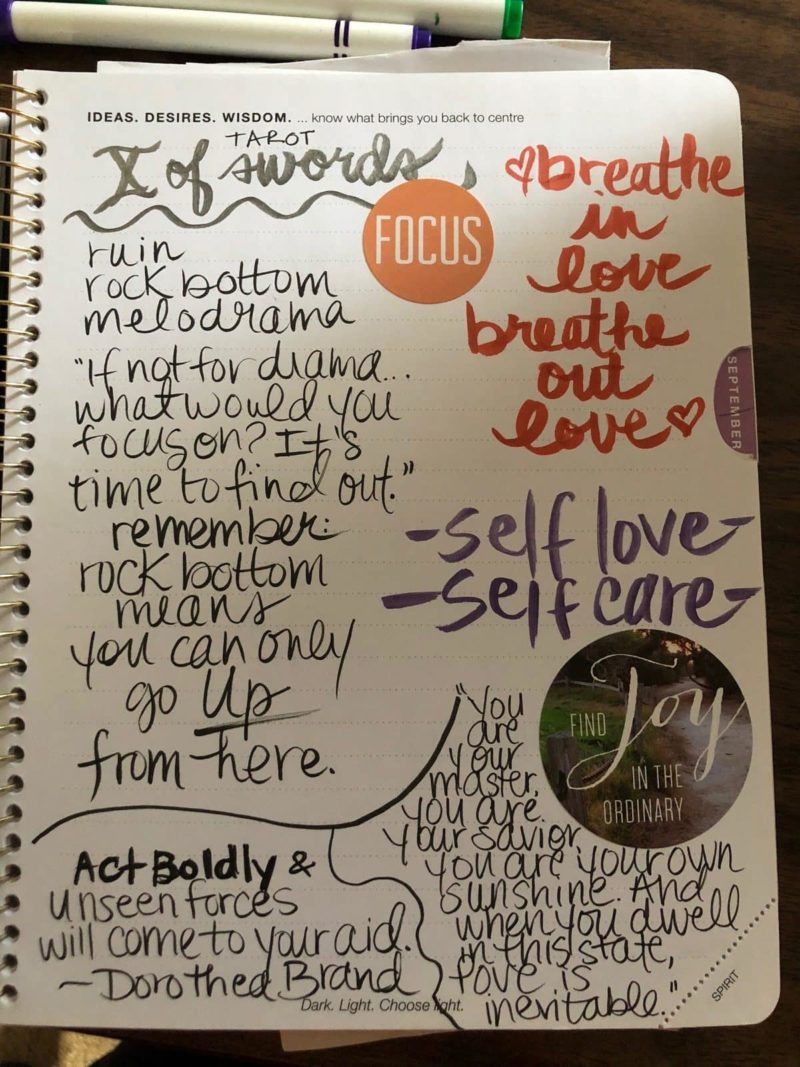 IDEAS. DESIRES. WISDOM. ... know what brings you back to centre
TAROT
X of swords
FOCUS
ruin
rock bottom
melodrama
"If not for drama...
what would you
focus on? It's
time to find out."
remember:
rock bottom
means
you can only
go Up
from here.
breathe
in
love
breathe
out
love
SEPTEMBER
-self love-
-self care-
FIND Joy
IN THE
ORDINARY
"You
are
your
master,
you are
your savior,
you are your own
sunshine. And
when you dwell
in this state,
love is
inevitable."
Act Boldly &
unseen forces
will come to your aid.
-Dorothea Brand
Dark. Light. Choose light.
SPIRIT